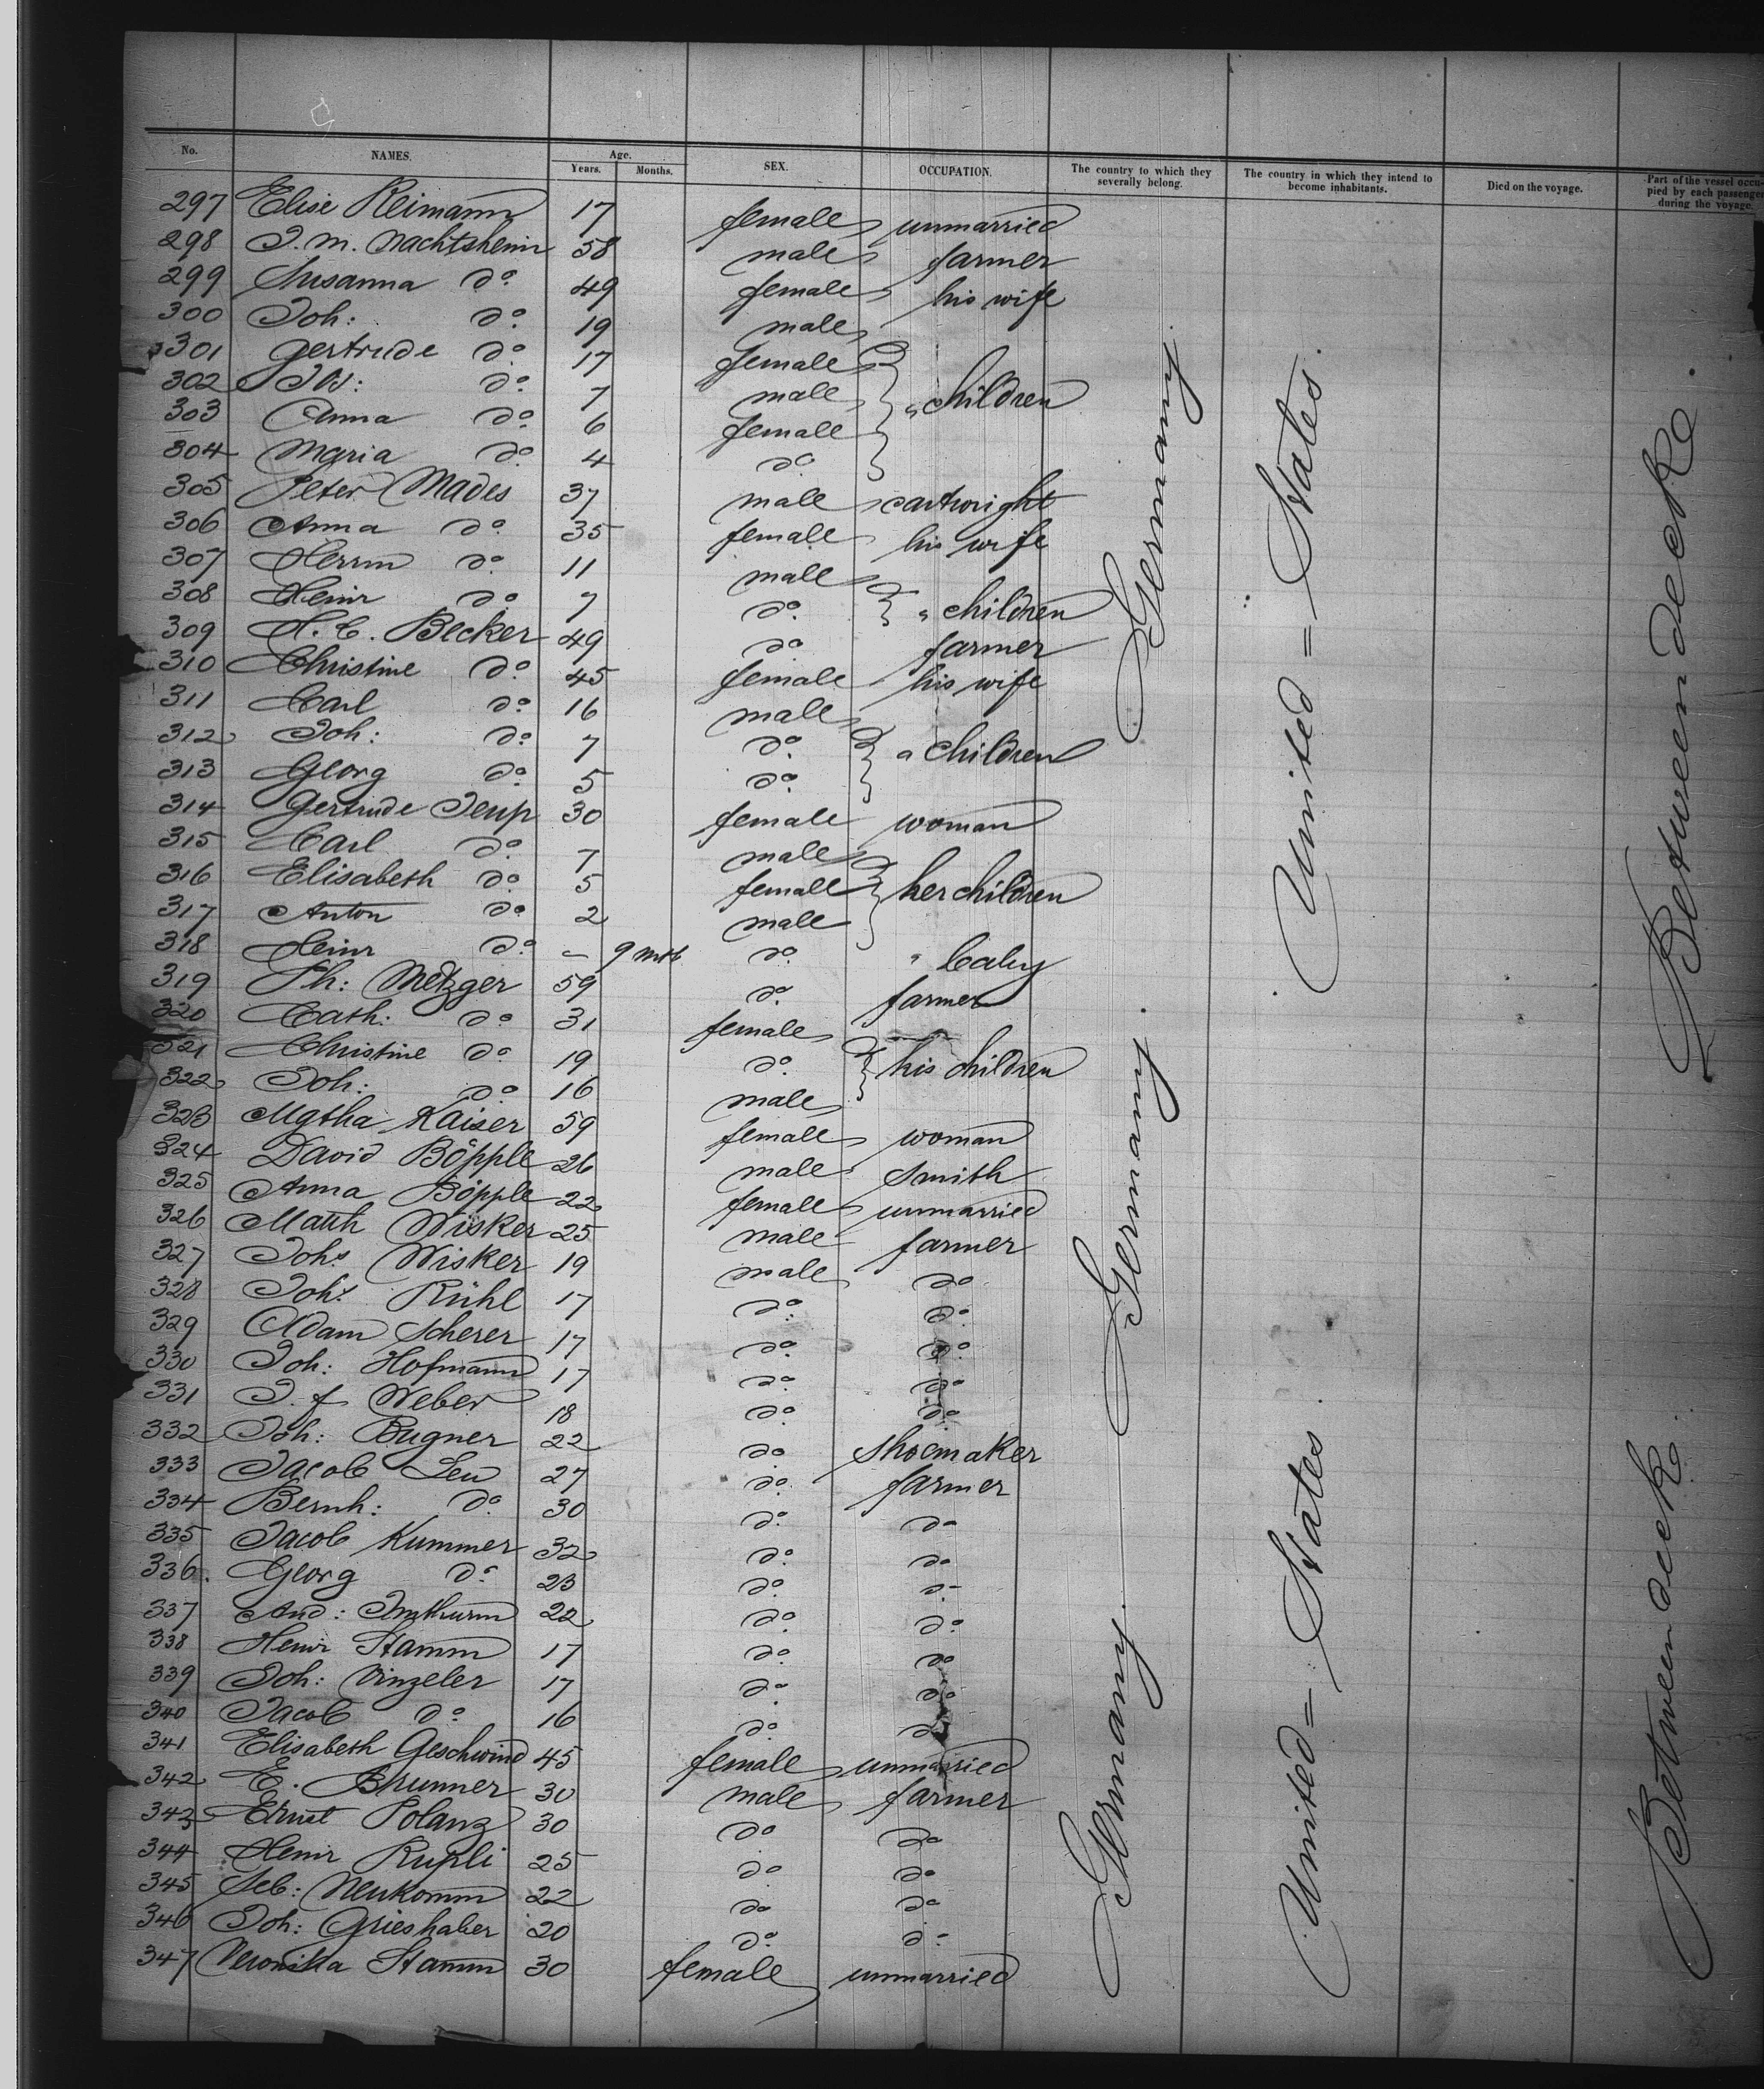 No. NAMES. Age. Years. Months. SEX. OCCUPATION. The country to which they severally belong. The country in which they intend to become inhabitants. Died on the voyage. Part of the vessel occupied by each passenger during the voyage.
297 Elise Reimann 17 female unmarried
298 J. M. Nachtsheim 58 male farmer
299 Susanna do. 49 female his wife
300 Joh: do. 19 male
301 Gertrude do. 17 female
302 Jos: do. 7 male " children
303 Anna do. 6 female
304 Mgria do. 4 do.
305 Peter Mades 37 male cartwright
306 Anna do. 35 female his wife
307 Herrm do. 11 male
308 Heinr do. 7 do. " children
309 H. C. Becker 49 do farmer
310 Christine do. 45 female his wife
311 Carl do. 16 male
312 Joh: do. 7 do. " children
313 Georg do. 5 do.
314 Gertrude Jeup 30 female woman
315 Carl do. 7 male
316 Elisabeth do. 5 female her children
317 Anton do. 2 male
318 Heinr do. – 9 mth do. " baby
319 Ph: Metzger 59 do. farmer
320 Cath: do. 31 female
321 Christine do. 19 do. his children
322 Joh: do. 16 male
323 Mgtha Kaiser 59 female woman
324 David Böpple 26 male smith
325 Anna Böpple 22 female unmarried
326 Math Wisker 25 male farmer
327 Johs Wisker 19 male do
328 Johs Rühl 17 do. do.
329 Adam Scherer 17 do. do.
330 Joh: Hofmann 17 do. do.
331 J. f Weber 18 do. do.
332 Joh: Bugner 22 do shoemaker
333 Jacob Leu 27 do. farmer
334 Bernh: do. 30 do. do
335 Jacob Kummer 32 do. do
336. Georg do. 23 do. do
337 And: Imthurm 22 do. do.
338 Heinr Stamm 17 do. do
339 Joh: Vinzeler 17 do. do
340 Jacob do. 16 do. do
341 Elisabeth Geschwind 45 female unmarried
342 E. Brunner 30 male farmer
343 Ernst Polanz 30 do do
344 Heinr Rupli 25 do do
345 Seb: Neukomm 22 do do
346 Joh: Grieshaber 20 do. do
347 Veronika Stamm 30 female unmarried
Germany
Germany.
Germany.
United = States.
United = States.
Between decke.
Between deck.